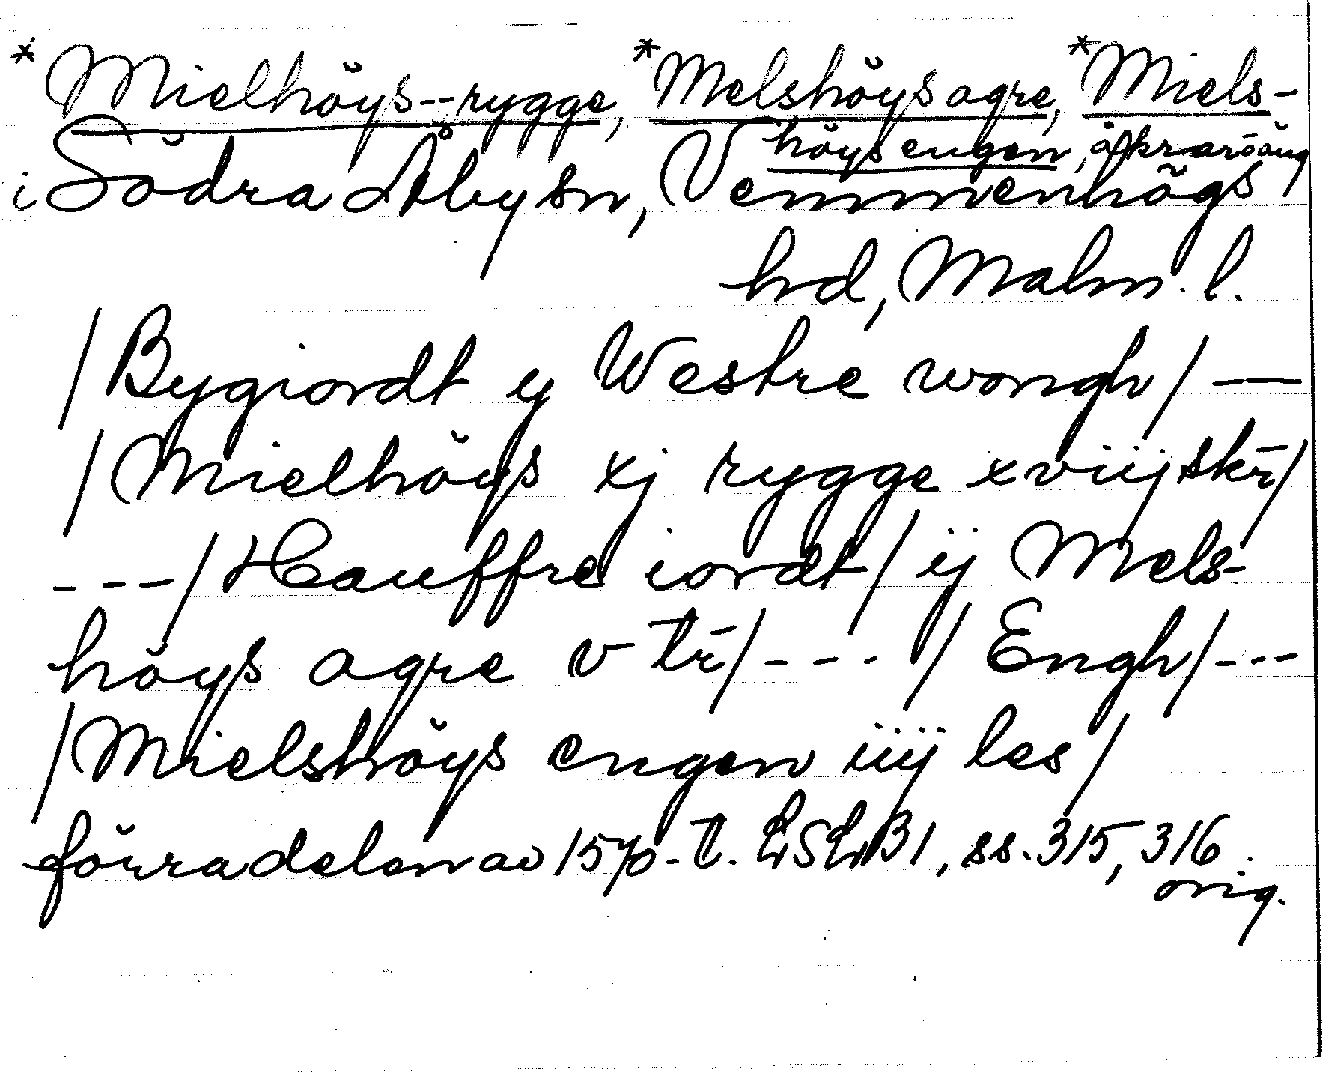 *Mielhöys--rygge, *Melshöys agre, *Miels-
höys engen, åkrar o äng
i Södra Åby sn, Vemmenhögs
hd, Malm. l.
/Bygiordt y Westre wongh/ —
/Mielhöys xj rygge xviij skr̄/
---/Hauffre iordt/ ij Mels-
höys agre v tr̄/--- / Engh/---
/Mielshöys engen iiij les/
förra delen av 1570-t. LSLB1, ss. 315, 316
orig.